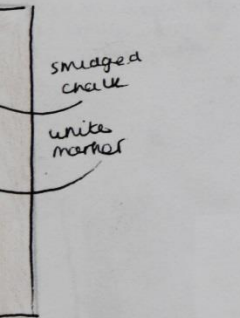 smudged
chalk
white
marker